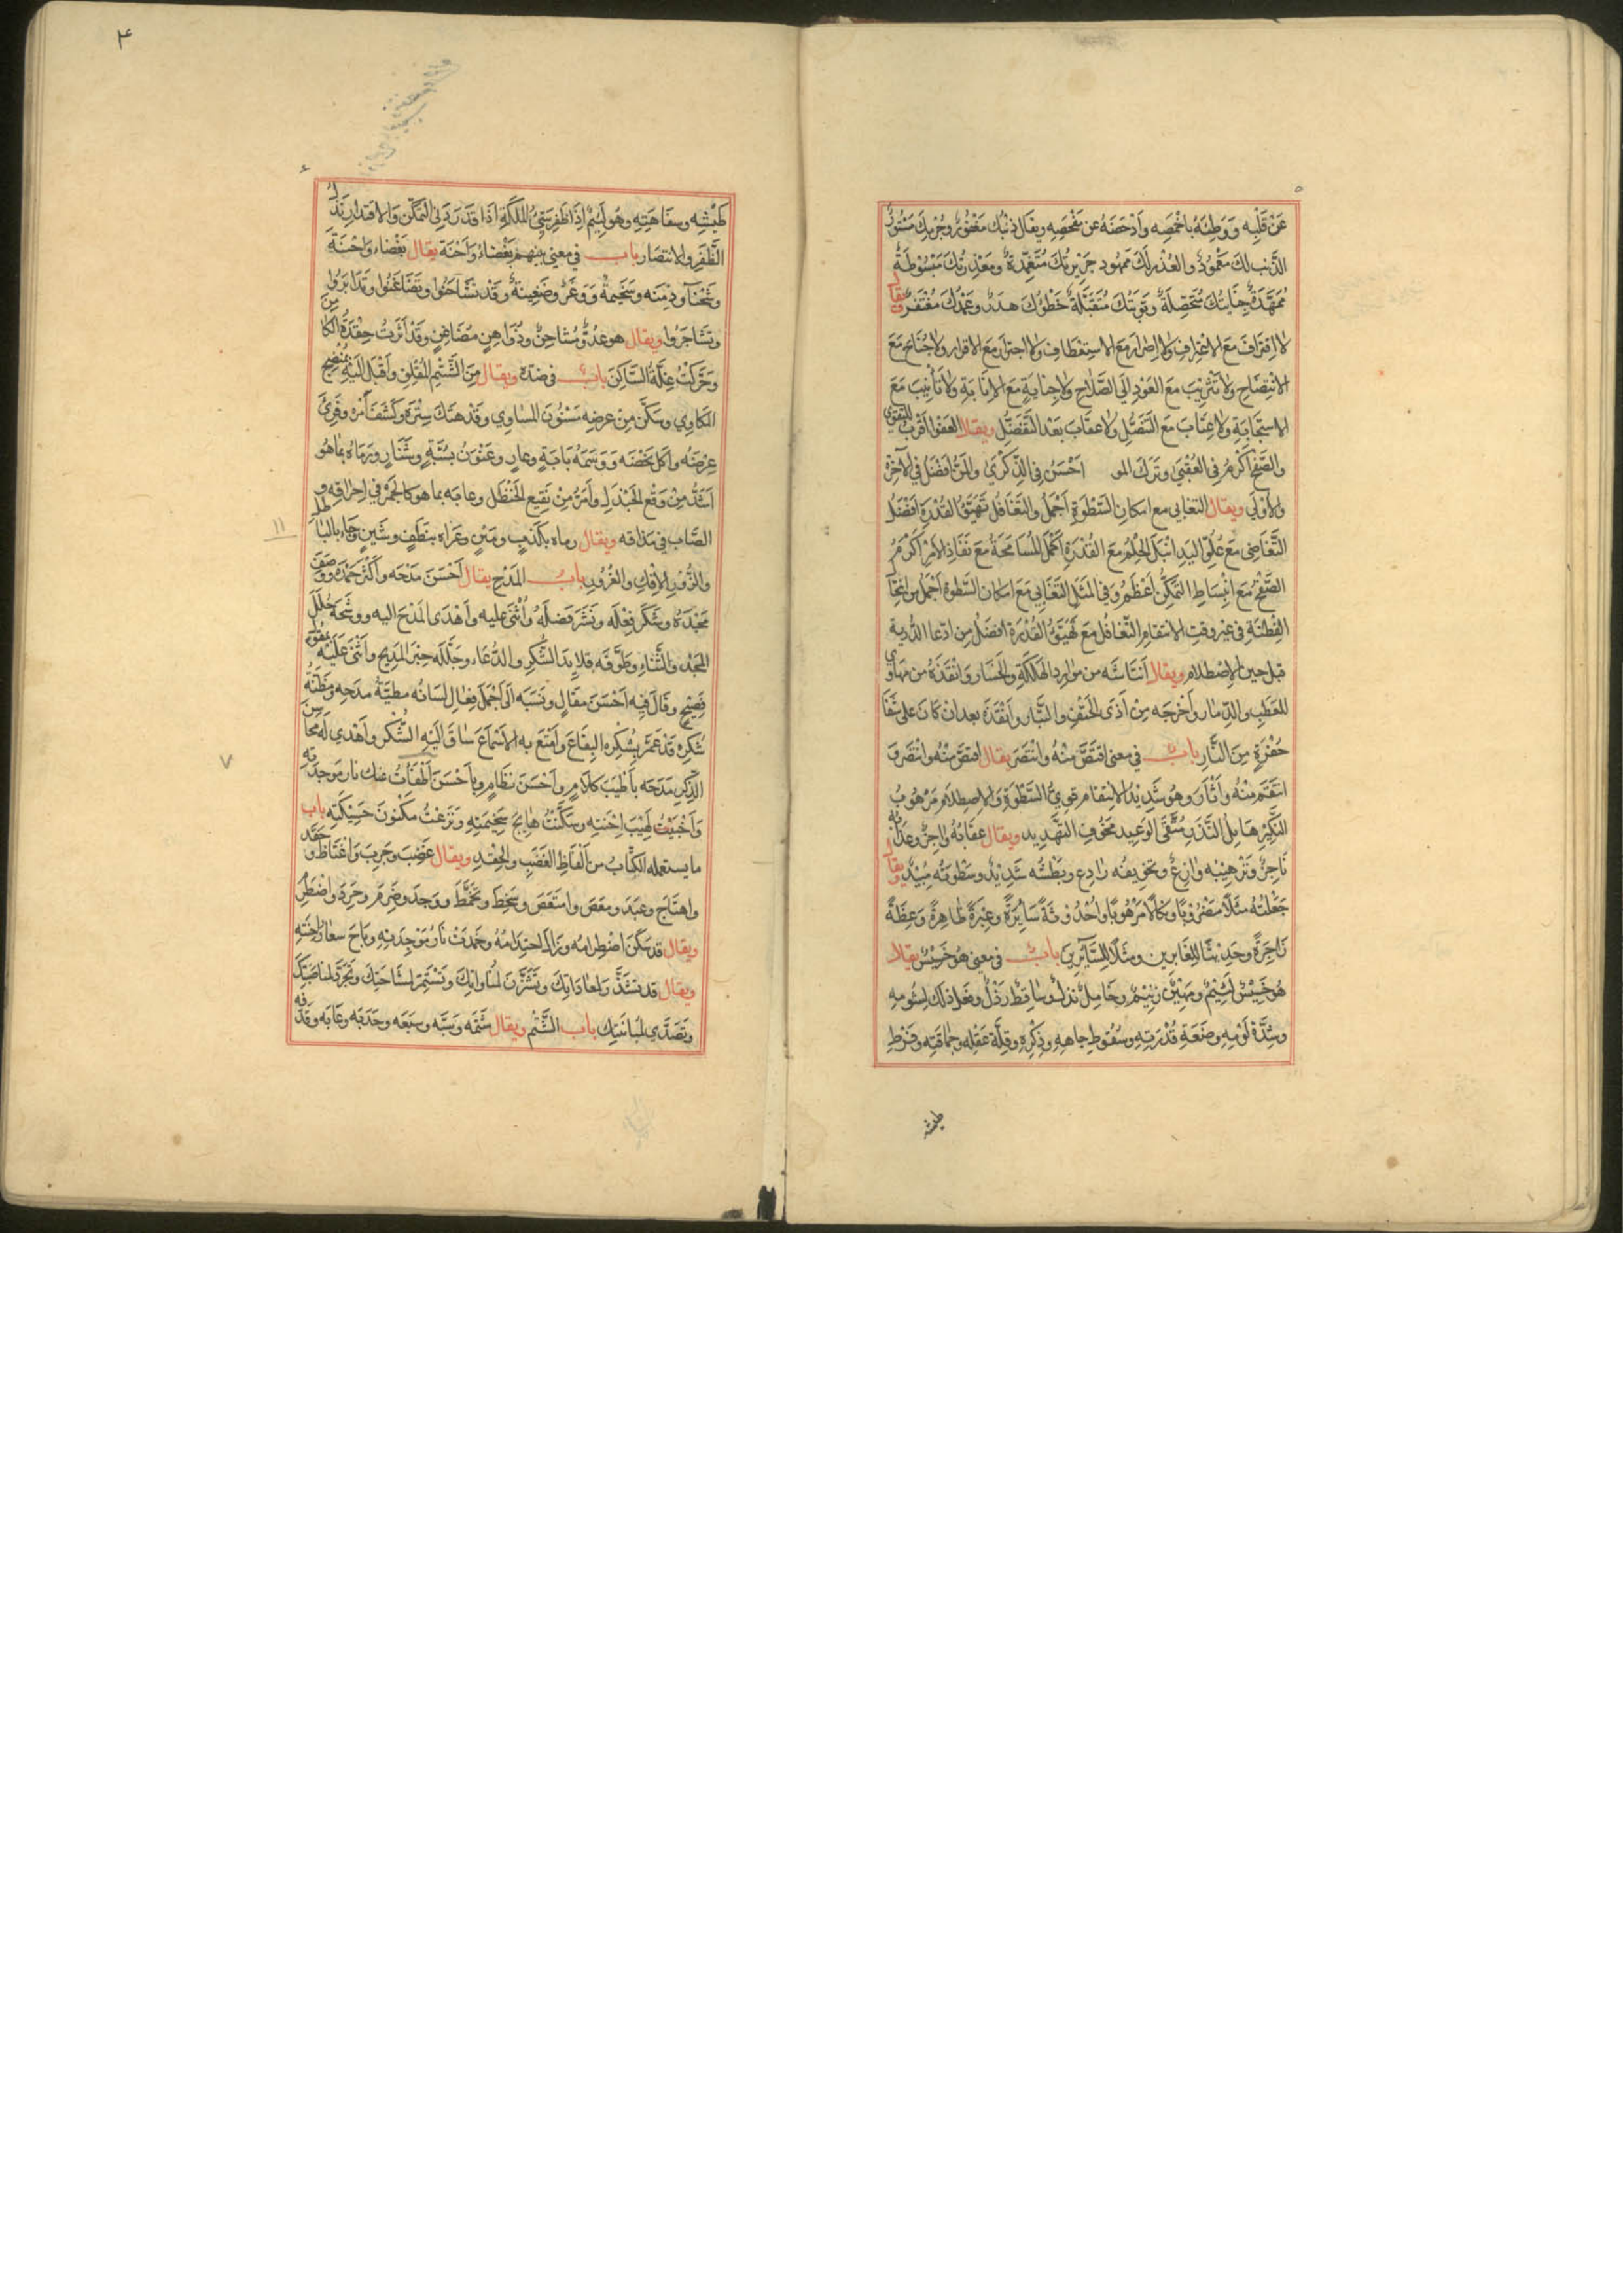 عَنْ قَلْبِه وَوَطِئَهُ بِاَخْمَصِه وَاَدْحَضَهُ عن مَفْحَصِه ويقال ذنبك مَغْفُورٌ وجُرْمُكَ مَسْتُورٌ
الذنب لك مَغْمُودٌ والعُذر لَكَ مَمهود جَرِيْرَتُكَ مُتَغَمَّدَةٌ ومَعْذِرَتُكَ مَبْسُوْطَةٌ
مُمَهَّدَةٌ جِنَايَتُكَ وتَوبَتُكَ مُتَقَبَّلَةٌ خَطَؤُكَ هَدَرٌ وعَمْدُكَ مُغْتَفَرٌ ويقال
لا اِقتِرَافَ مَعَ الاِعْتِرافِ ولا اِصْرارَ مَعَ الاِستِعْطَافِ ولا اجترامَ مَعَ الاقرار ولا جُنَاحَ مَعَ
الاِنْتِصَاحِ ولا تَثْرِيْبَ مَعَ العَوْدِ اِلَى الصَّلاحِ ولا جِنايةَ مَعَ الاِنَابَةِ ولا تَأنِيْبَ مَعَ
الاِستِجَابَةِ ولا عِتَابَ مَعَ التَّنَصُّلِ ولا عِقَابَ بَعْدَ التَّفَضُّلِ ويقال العَفْوُ اَقْرَبُ للتقوى
والصَّفْحُ اَكْرَمُ فِى العُقْبَى وتَرَكُ المو اَحْسَنُ فِى الذِّكْرَى والمَنُّ اَفضَلُ فى الآخِرَة
والاُوْلَى ويقال التغابى مع امكانِ السَّطْوَةِ اَجْمَلُ والتَّغَافُلُ تَهَيُّؤَ القُدْرَةِ اَفْضَلُ
التَّغَاضِى مَعَ عُلُوِّ اليَدِ اَنْبَلُ الحِلْمُ مَعَ القُدْرَةِ اَكْمَلُ المُسَامَحَةُ مَعَ نَفَاذِ الاَمْرِ اَكْرَمُ
الصَّفْحُ مَعَ اِنْبِسَاطِ التَّمَكُّنِ اَعْظَمُ وَفِى المَثَلِ التَّغَابِى مَعَ امكان السَّطوة اَجْمَلُ من
الفِطْنَةِ فى غير وقت الانتقام التَّغافُل مَعَ تَهَيُّؤِ القُدْرَة افضَلُ مِن ادّعا الدُّربة
قبل حين الاِصْطلام ويقال اَنتَاشَه من مَوَارِد الهَلَكَةِ والخَسَار وَانْقَذَهُ من مهاوى
للعَطَبِ والدّمار واَخْرَجَه مِنْ اَذَى الحَتْفِ والتَّبَار وانْقَذَهُ بعد ان كانَ على شَفَا
حُفْرَةٍ مِنَ النَّارِ باب فى معنى اقتَصَّ مِنْهُ وانْتَصَرَ يقال اقتصَّ مِنْهُ وانتَصَرَ وَ
انتَقَمَ مِنْهُ وَاَثْأَرَ وهُوَ شَدِيْدُ الاِنْتِقَامِ قوىُّ السَّطْوَةِ والاِصطِلامِ مَرْهُوبُ
النَّكِيْرِ هَائِلُ النَّذِيرِ مُتَّقَى الوَعِيد مَخُوفُ التَّهْدِيد ويقال عِقَابُهُ واجزٌ وعَذَابه
نَاجِزٌ وتَرْهِيْبُه وَازِعٌ وتخويفُه رَادِعٌ وبَطْشُه شَدِيْدٌ وسَطْوَتُه مُبِيْدٌ ويقال
جَعَلْتُهُ مَثَلاً مَضْرُوبًا ونَكَالاً مَرْهُوبًا واُحْدُوثَةً سَائِرَةً وعِبْرَةً ظَاهِرَةً وَعِظَةً
زَاجِرَةً وحَدِيثًا لِلغَابِرِين ومَثَلاً للسَّائِرِينَ باب فى معنى هُوَ خَسِيْسٌ يقال
هُوَ خَسِيْسٌ لَئِيْمٌ ومَهِيْنٌ زنِيْمٌ وخَامِلٌ نذلٌ وساقِطٌ رَذْلٌ وفعَلَ ذلك لِشُومِه
وشِدَّةِ لَوْمِهِ وضَعَةِ قُدْرَتِه وسُقُوطِ جاهِهِ وذِكْرِهِ وقِلَّةِ عَقْلِه وحِمَاقَتِه وفَرْطِ
طيشه
۴
طَيْشِه وسفَاهَتِهِ وهُوَ لَئِيمٌ اِذَا ظَفِرَ سَيِّئُ المَلَكَةِ اذا قدَرَ التَمكّن وَالاِقتدار
الظَّفَر والانتصار باب فى معنى بينهم بَغْضاءُ وَاَحْنَة يقال بَغْضاء وَاحْنَةٌ
وشَحْنآء ودِمْنَه وسَخِيمةٌ وَوَغَرٌ وضَغِينةٌ وقَدْ تَشَاحَنُوا وتَضَاغَنُوا وتَدَابَرُوا
وتَشَاجَرُوا ويقال هو عدُوٌّ مُشاحِنٌ مُضَاغِنٍ وقَدْ اَثَرتُ حِقْدَهُ الكَامِنَ
وحَرَّكْتُ السَّاكِنَ باب فى ضده ويقال مِنَ الشَّتِمِ المُقْلِقِ وَاَقْبَلَ اليه
المكاوى وسَكَّنَ مِنْ عرضِه مَسْنُونَ المساوى وقَدْ هَتَكَ سِتْرَهُ وكَشَفَ اَمْرَهُ وفَرِىَ
عِرْضَهُ واَكَلَ نَحْضَهُ وَوَسَمَهُ بَابَةٍ وعارٍ وعَنْوَنَ بسُبَّةٍ وشَنَارٍ ورَمَاهُ بِمَا هُوَ
اَشَدُّ مِنْ وَقْعِ الجَنْدَلِ واَمَرُّ مِنْ نَقِيعِ الحَنْظَل وعابَه بما هو كالجَمْرِ فى اِحراقِهِ و
الصَّاب فى مَذاقه ويقال رماه بكَذِبٍ ومَيْنٍ وعَرَاه بنَطَفٍ وشَيْنٍ وجَاءَ بالباطل
والزُّوْرِ الاِفْكِ والغُرُورِ باب المَدْحِ يقال اَحْسَنَ مَدْحَه وَاَكْثَرَ حَمْدَهُ ووَصَفَ
مَجْدَهُ وشَكَرَ فِعْلَه ونَشَرَ فَضلَهُ واَثْنَى عليه واَهْدَى المَدْحَ اليه ووشَّحَهُ حُلَلَ
المَجْدْ والثَّنَاءِ وطَوَّقَه قلايِدَ الشُّكْرِ والدُّعَاء وجَلَّلَه حِبَرَ المَدِيحِ واَثْنَى عَلَيْه بقول
فَصِيْحٍ وقَالَ فِيْهِ اَحْسَنَ مَقَالٍ ونَسَبَه اِلَى اَجْمَلَ فِعَالٍ لسَانُه مطيّةُ مدحِهِ ومَظَنَّةُ
شُكرِهْ قَدْ عَمَرَ بِشُكْرِه البِقَاعَ وَاَمْتَعَ به الاَسْمَاعَ سَاقَ اَلَيْهِ الشُّكْرَ واَهْدى لَهُ مَحَاسِنَ
الذِّكرِ مَدَحَه بأَطْيَبَ كلامٍ واَحْسَنَ نظامٍ وبأَحْسَنَ اَطْفَأتُ عنك نارَ مَوجِدَتِهِ
وَاَخْبَيْتُ لَهِيْبَ اِحْنَتِه وسَكَّنْتُ هَايجَ سَخِيْمَتِه ونَزَعْتُ مكْنُونَ حَسِيْكَتِه باب
ما يستعمله الكُتَّابُ من اَلْفَاظِ الغَضَبِ والحِقْدِ ويقال غَضِبَ وحَرِبَ واغْتَاظَ وحَقَدَ
واهتَاجَ وعَبَدَ ومعَضَ وامتَعَضَ وسَخِطَ وتَخَمَّطَ ووَجَدَ وضَرِمَ وحَرِدَ واضْطَرَمَ
ويقال قد سَكَنَ اضطِرامُه وزَالَ احتِدَامُهُ وخَمَدَتْ نَارُ مَوْجِدَتِهِ وبَاخَ سعَارُ اِحْنَتِهِ
ويقال قد تشَذَّرَ لمعَادَاتِكَ وتَشَزَّنَ لمُناواتِكَ وتَشَمَّرَ لمُشَاحَنَتِكَ وتَجَرَّدَ لمناصَبَتِكَ
وتَصَدَّى لمُبَايَنَتِكَ باب الشَّتْمِ ويقال شَتَمَهُ وسَبَّه وسَبَعَه وجَدَبَه وعَابَه وقَذَفَه
۱۱
۷